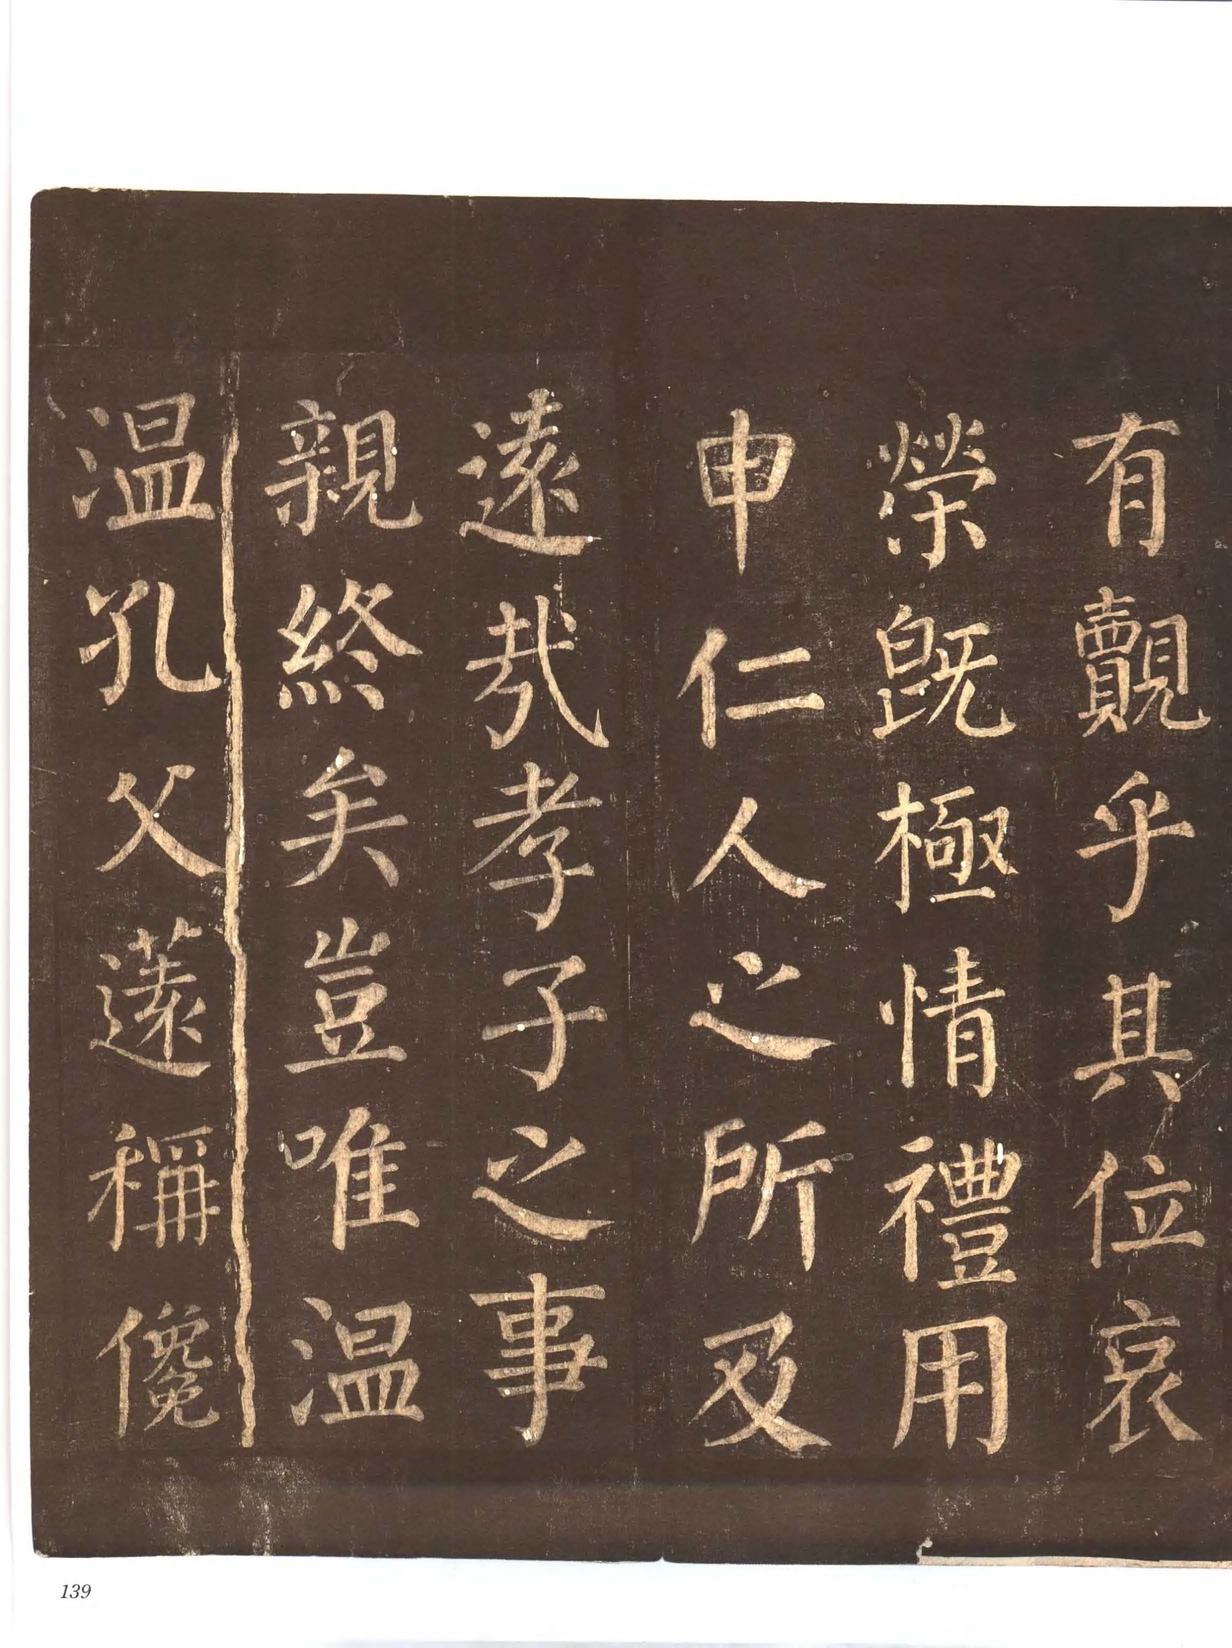 有覿乎其位哀
榮既極情禮用
申仁人之所及
遠哉孝子之事
親終矣豈唯温
温孔父薳稱儳
139